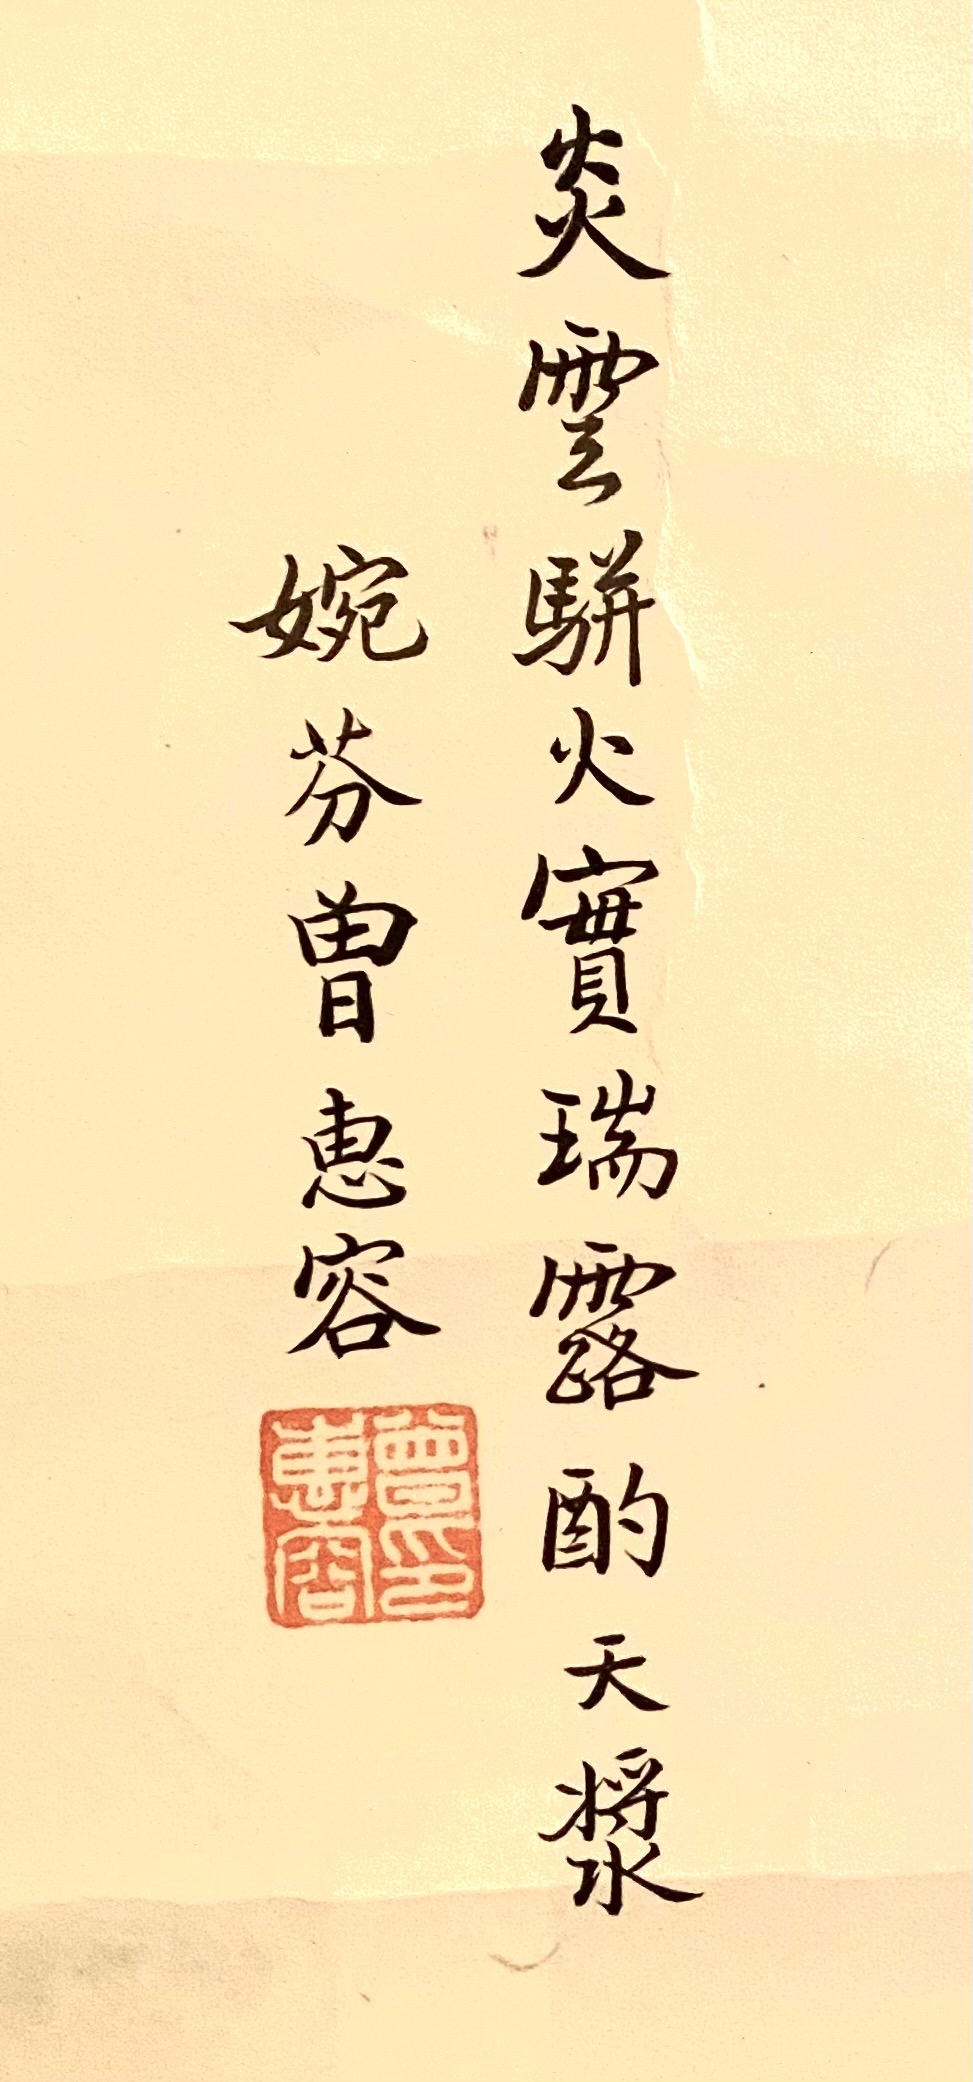 炎雲駢火實瑞露酌天漿
婉芬曾惠容
曾印惠容